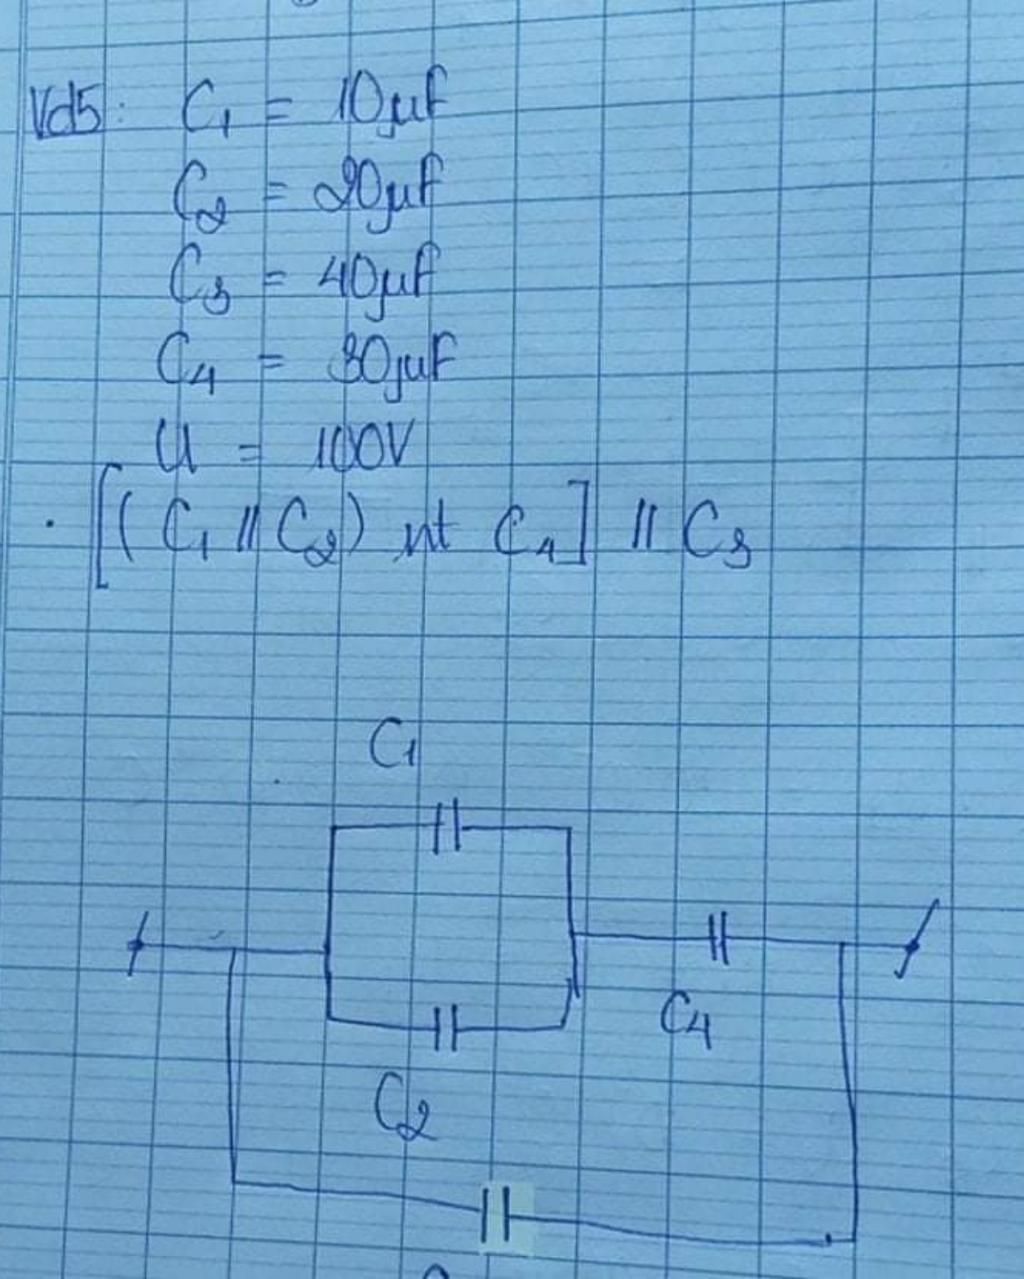 Vd5: C₁ = 10µF
C₂ = 20µF
C₃ = 40µF
C₄ = 30µF
U = 100V
· [(C₁ // C₂) nt C₄] // C₃
C₁
C₄
C₂